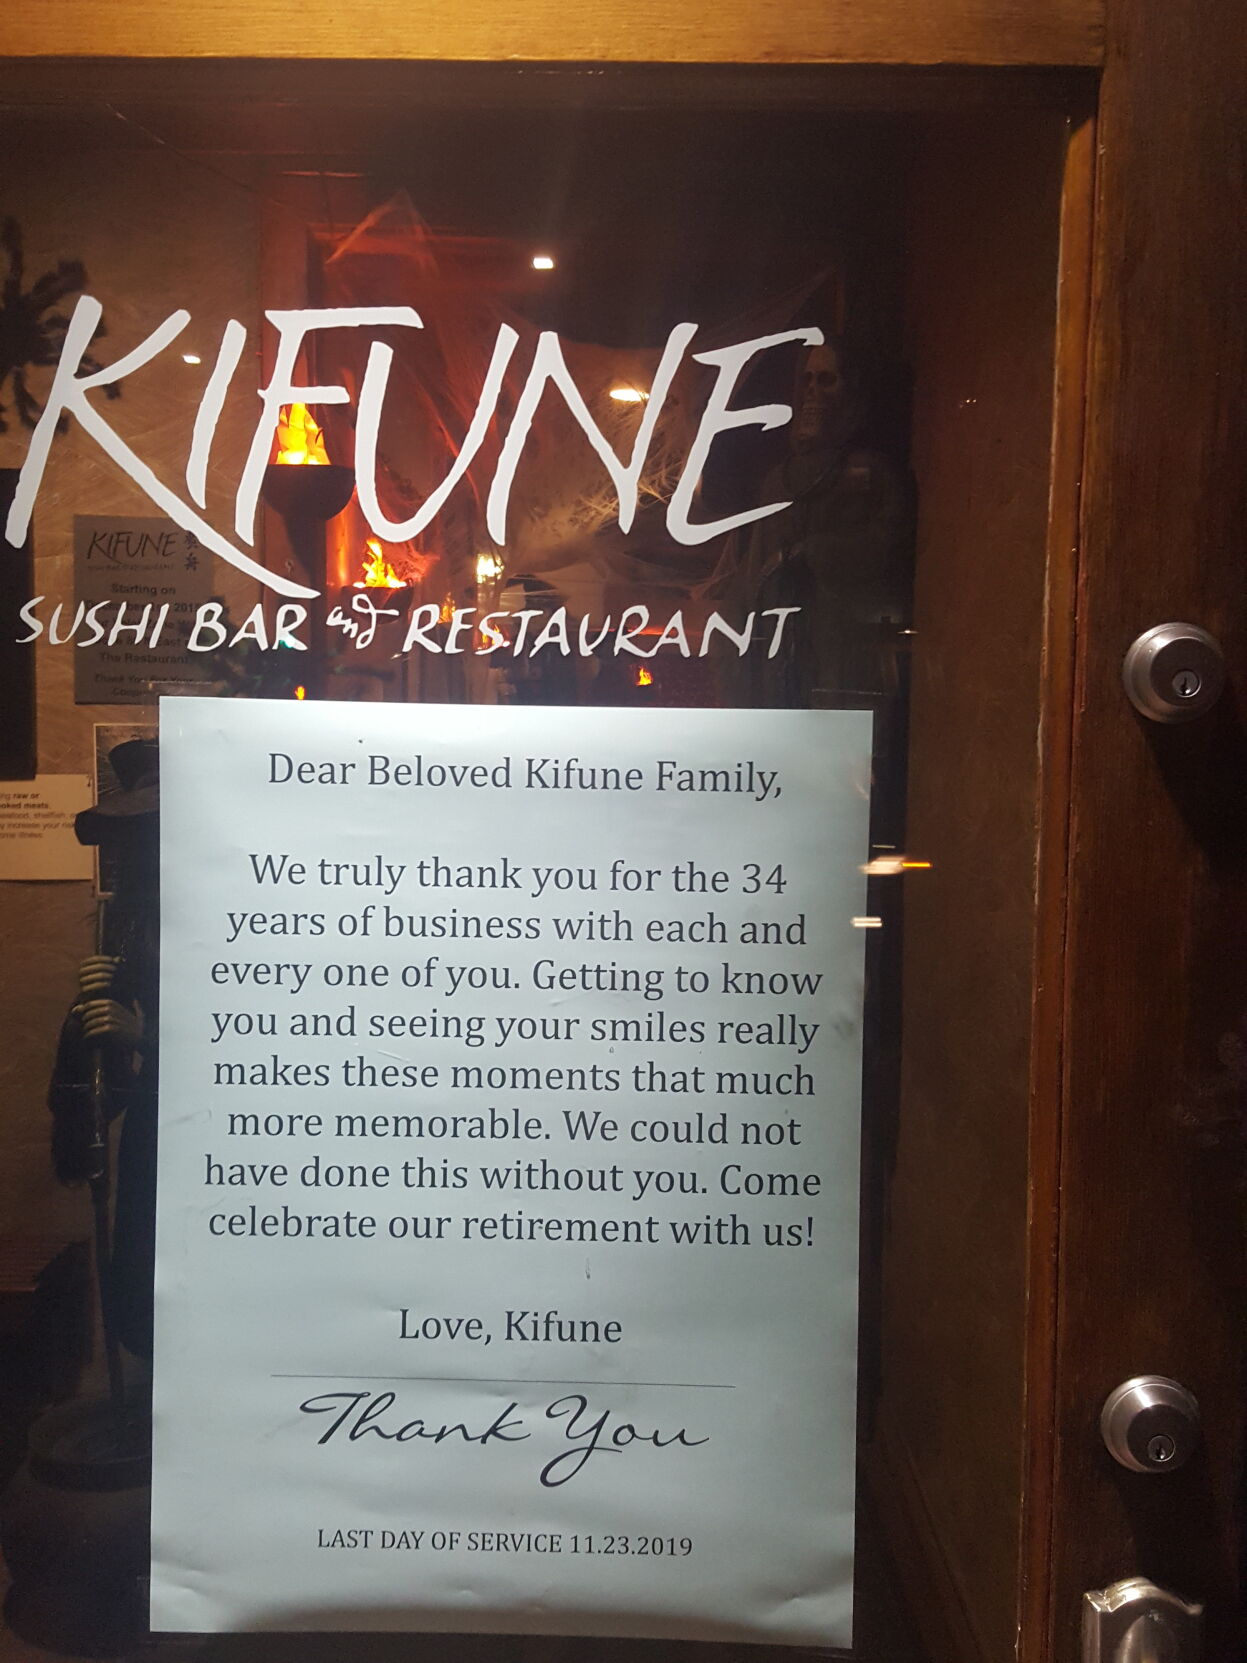 KIFUNE
SUSHI BAR and RESTAURANT
KIFUNE
Starting on
The Restaurant
Thank You For Your
raw or
meats,
shellfish,
increase your
Dear Beloved Kifune Family,
We truly thank you for the 34
years of business with each and
every one of you. Getting to know
you and seeing your smiles really
makes these moments that much
more memorable. We could not
have done this without you. Come
celebrate our retirement with us!
Love, Kifune
Thank You
LAST DAY OF SERVICE 11.23.2019